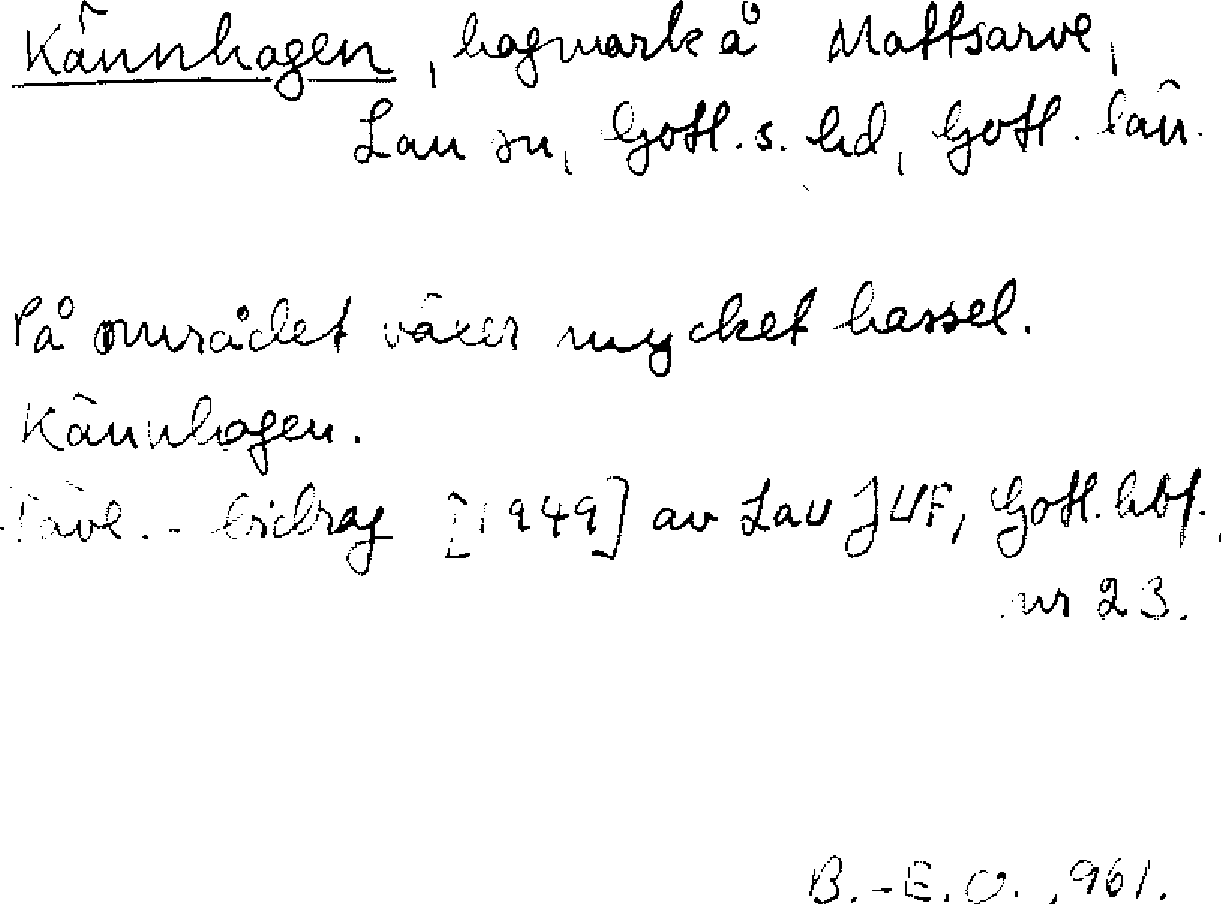 Kännhagen, hagmark å Mattsarve,
Lau sn, Gotl. s. hd, Gotl. län.
På området växer mycket hassel.
Kännhagen.
Tävl.-bidrag [1949] av Lau JUF, Gotl. hbf.
nr 23.
B.-E. O. 1961.